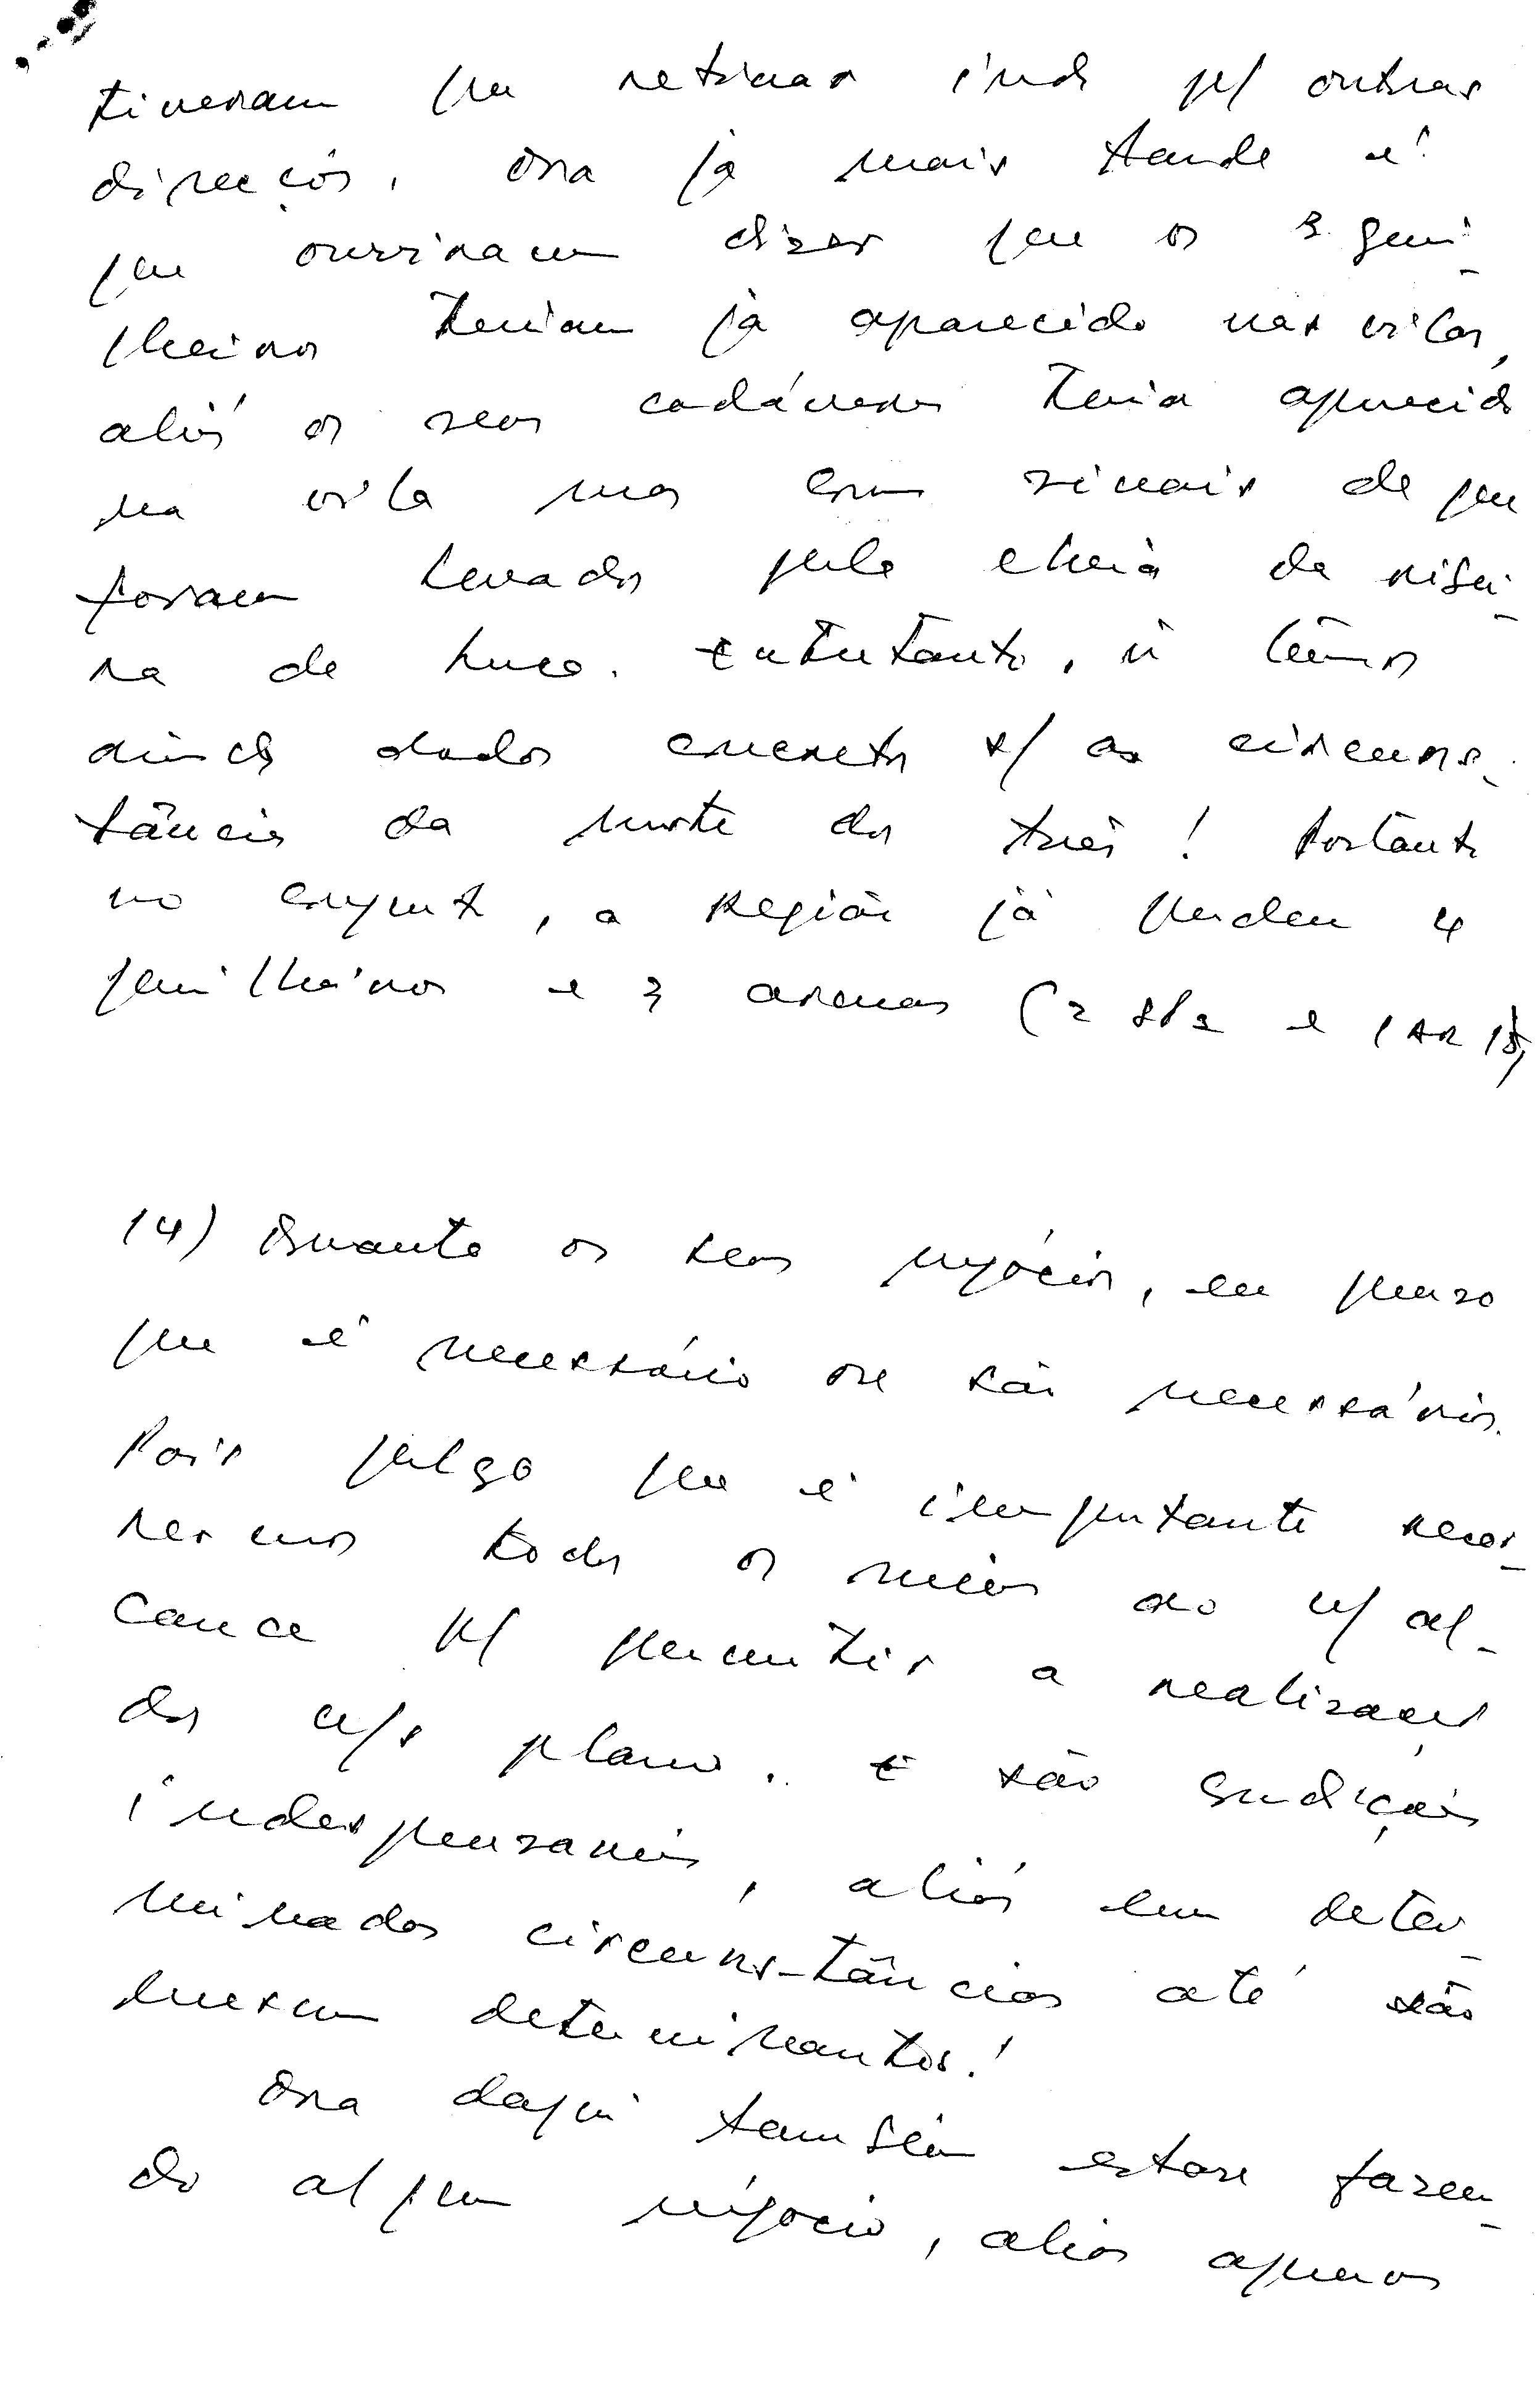 tiveram que retirar indo p/ outras
direcções. Ora já mais tarde é
que ouviram dizer que os 3 gueri-
lheiros teriam já aparecido nas vilas,
aliás os seus cadáveres teria aparecido
na vila mas com sinais de que
foram levados pela cheia da ribei-
ra de Luco. Entretanto, ñ temos
ainda dados concretos s/ as circuns-
tâncias da morte dos três! Portanto
no conjunto, a Região já perdeu 4
guerilheiros e 3 armas (2 e 1 AR 15)
14) Quanto os seus negócios, eu penso
que é necessário ou são necessários.
Pois julgo que é importante recor-
rermos todos os meios ao n/ al-
cance p/ permitir a realização
dos n/s planos. E são condições
indespensaveis, aliás em deter-
minados circuns-tâncias até são
mesmo determinantes!
Ora daqui também estou fazen-
do algum negócio, aliás apenas